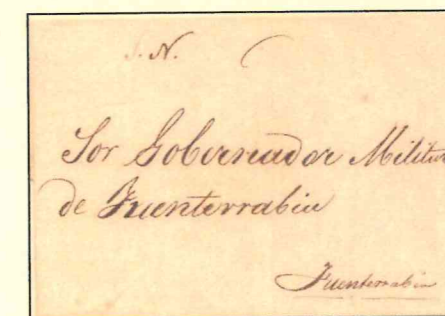 S. N.
Sor Gobernador Militar
de Fuenterrabia
Fuenterrabia